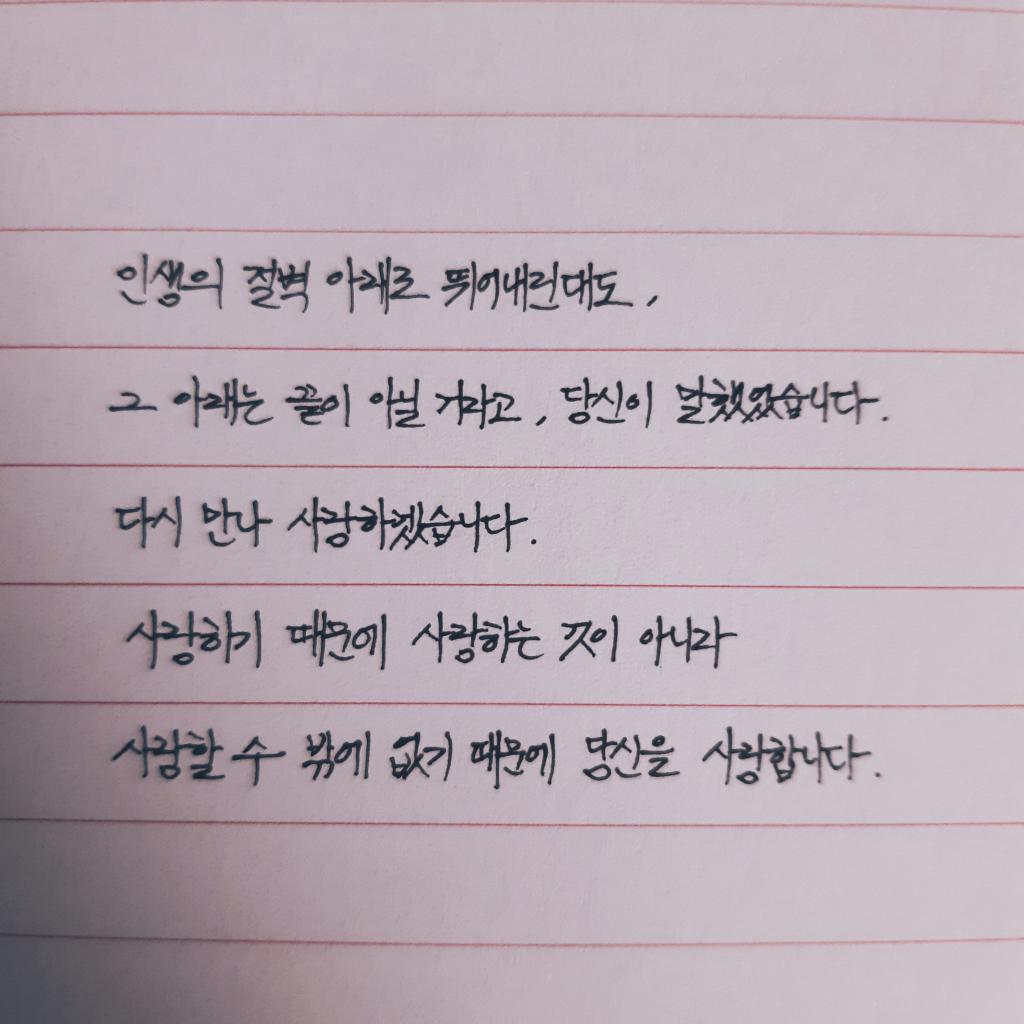 인생의 절벽 아래로 뛰어내린대도,
그 아래는 끝이 아닐 거라고, 당신이 말했었습니다.
다시 만나 사랑하겠습니다.
사랑하기 때문에 사랑하는 것이 아니라
사랑할 수 밖에 없기 때문에 당신을 사랑합니다.